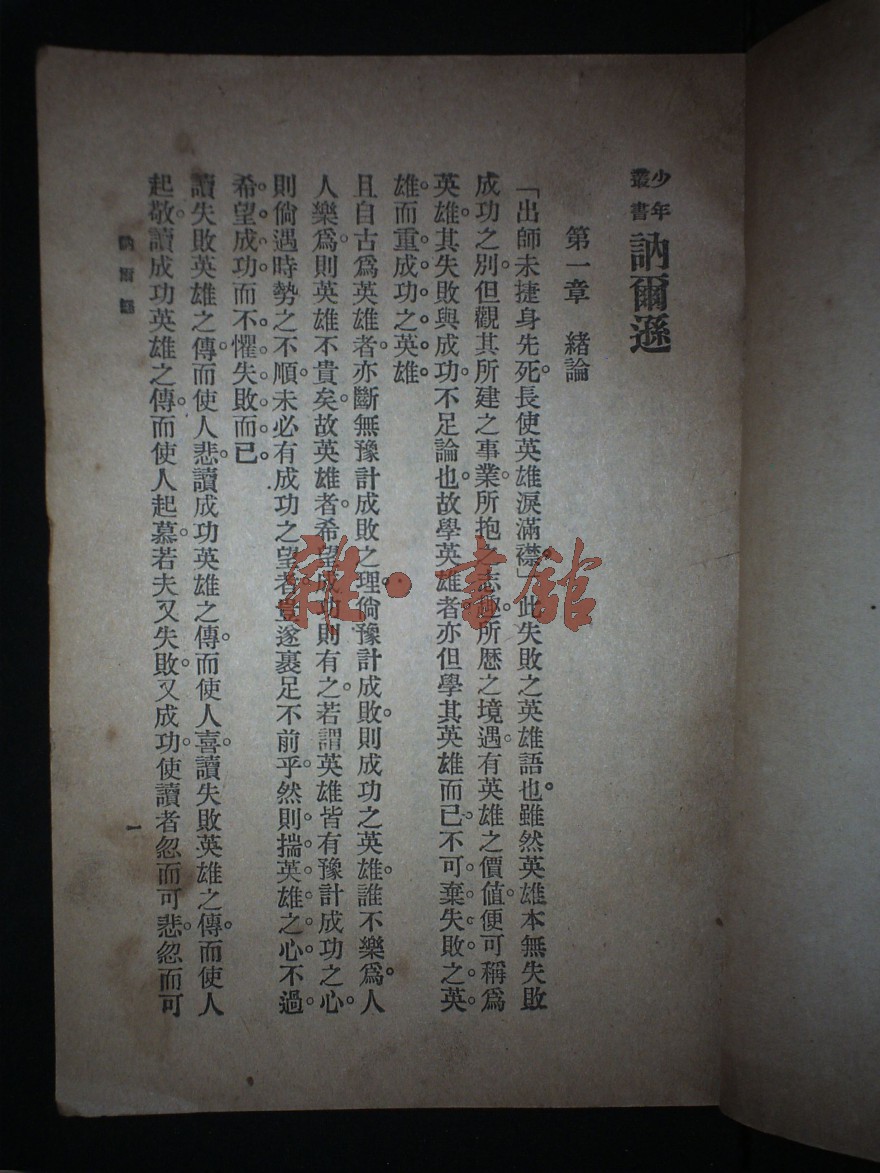 少年叢書 訥爾遜
第一章 緒論
「出師未捷身先死。長使英雄淚滿襟。」此失敗之英雄語也。雖然英雄本無失敗
成功之別。但觀其所建之事業。所抱之志趣。所歷之境遇。有英雄之價值。便可稱爲
英雄。其失敗與成功。不足論也。故學英雄者。亦但學其英雄而已。不可棄失敗之英
雄。而重成功之英雄。
且自古爲英雄者。亦斷無豫計成敗之理。倘豫計成敗。則成功之英雄。誰不樂爲。人
人樂爲。則英雄不貴矣。故英雄者。希望成功則有之。若謂英雄皆有豫計成功之心。
則倘遇時勢之不順。未必有成功之望者。豈遂裹足不前乎。然則揣英雄之心。不過
希望成功。而不懼失敗而已。
讀失敗英雄之傳。而使人悲。讀成功英雄之傳。而使人喜。讀失敗英雄之傳。而使人
起敬。讀成功英雄之傳。而使人起慕。若夫又失敗。又成功。使讀者忽而可悲。忽而可
訥爾遜
一
雜·書館